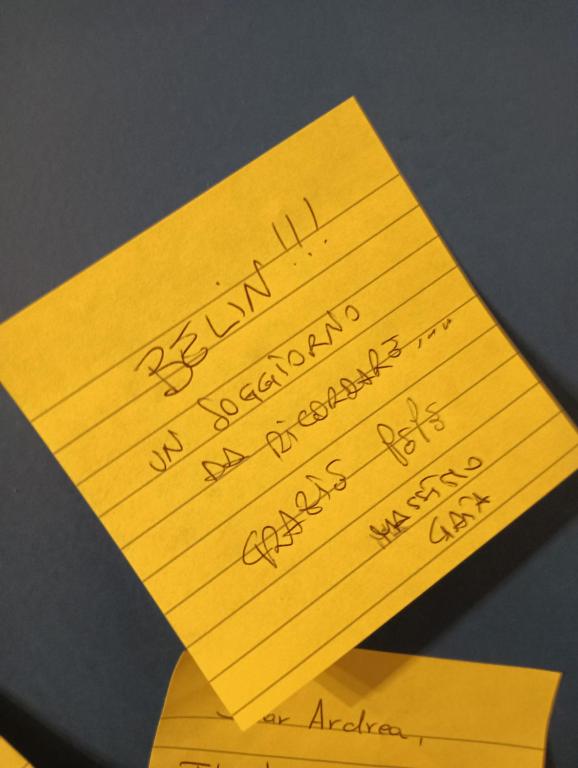 BELIN!!!
UN SOGGIORNO
DA RICORDARE....
GRAZIE PEPE
MASSIMO
GAIA
Andrea,